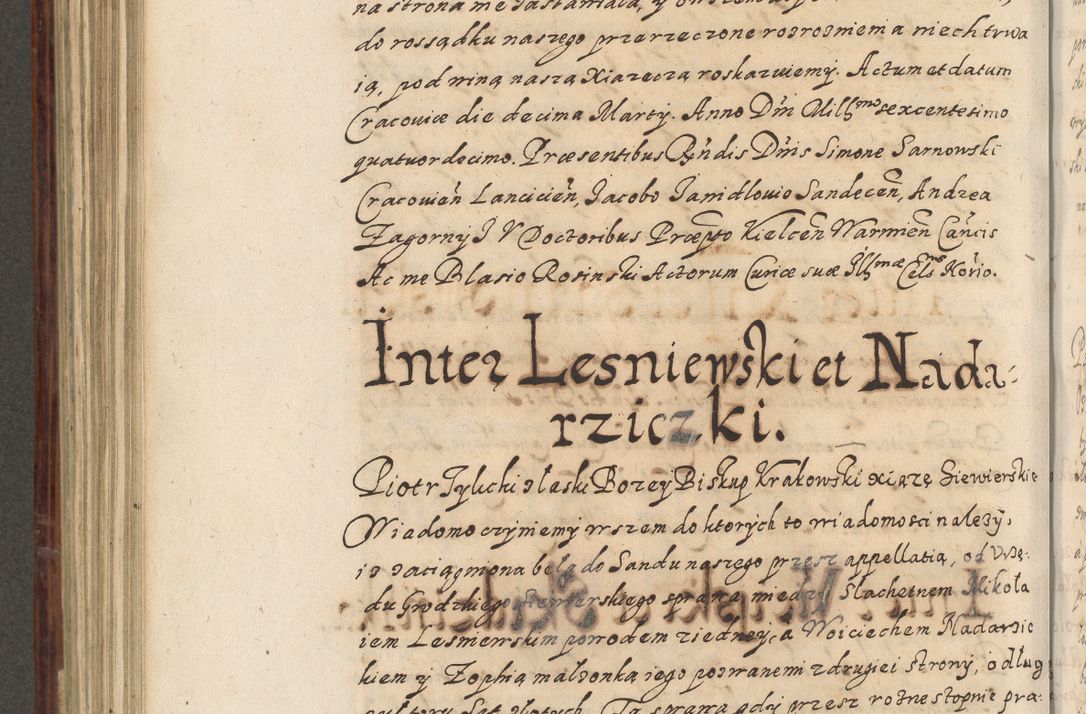 do rossądku naszego przerzeczone rozrożnienia niech trwa
ią, pod winą naszą Xiążęcą roskazuiemy. Actum et datum
Cracoviæ die decima Martÿ. Anno Dñi Mill̃mo sexcentesimo
quatuordecimo. Præsentibus Rñdis Dñis Simone Sarnowski
Cracovieñ Lancicieñ, Jacobo Janidlovio Sandeceñ, Andrea
Zagorny J V Doctoribus Præpto Kielceñ Warmieñ Cańcis
Ac me Blasio Rosinski Actorum Curiæ suæ Ill̃mæ Cels Nořio.
Inter Lesniewski et Nada-
rziczki.
Piotr Tylicki z łaski Bozey Biskup Krakowski xiążę Siewierskie
Wiadomo czyniemy wszem do ktorych to wiadomosci należy,
iż zaciągniona beła do Sandu naszego przesz appellatią, od Vrzę-
du Grodzkiego Siewierskiego sprawa miedzy Slachetnem Mikoła
iem Lesniewskim powodem z iedney, a Woiciechem Nadarzic
kiem y Zophią małżonką iego pozwanemi z drugiei strony, o dług